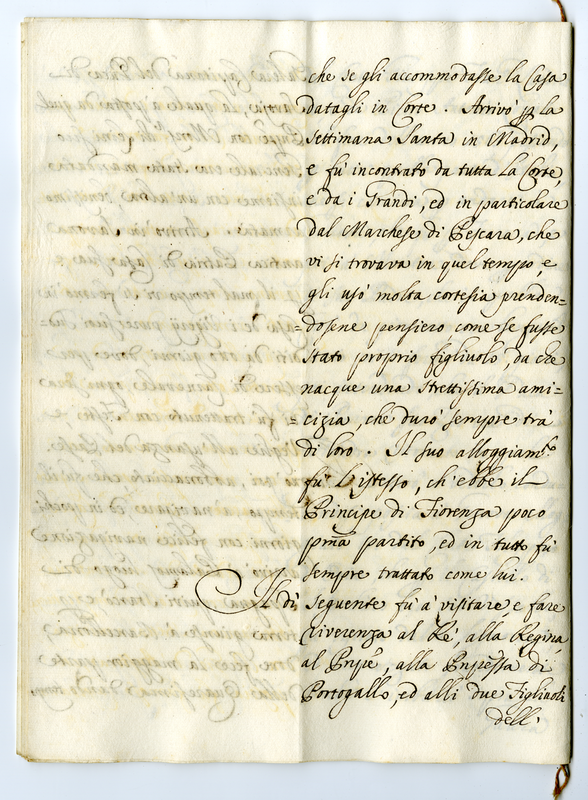 che se gli accommodasse la Casa
datagli in Corte. Arrivò p la
settimana Santa in Madrid,
e fù incontrato da tutta la Corte,
e da i Grandi, ed in particolare
dal Marchese di Pescara, che
vi si trovava in quel tempo, e
gli usò molta cortesia prenden=
=dosene pensiero come se fusse
stato proprio figliuolo, da che
nacque una strettissima ami=
=cizia, che durò sempre trà
di loro. Il suo alloggiam.to
fù l'istesso, ch'ebbe il
Principe di Fiorenza poco
pr̃ma partito, ed in tutto fù
sempre trattato come lui.
Il dì seguente fù à visitare, e fare
riverenza al Rè, alla Regina,
al Pnpe, alla Pnpessa di
Portogallo, ed alli due Figliuoli
dell'